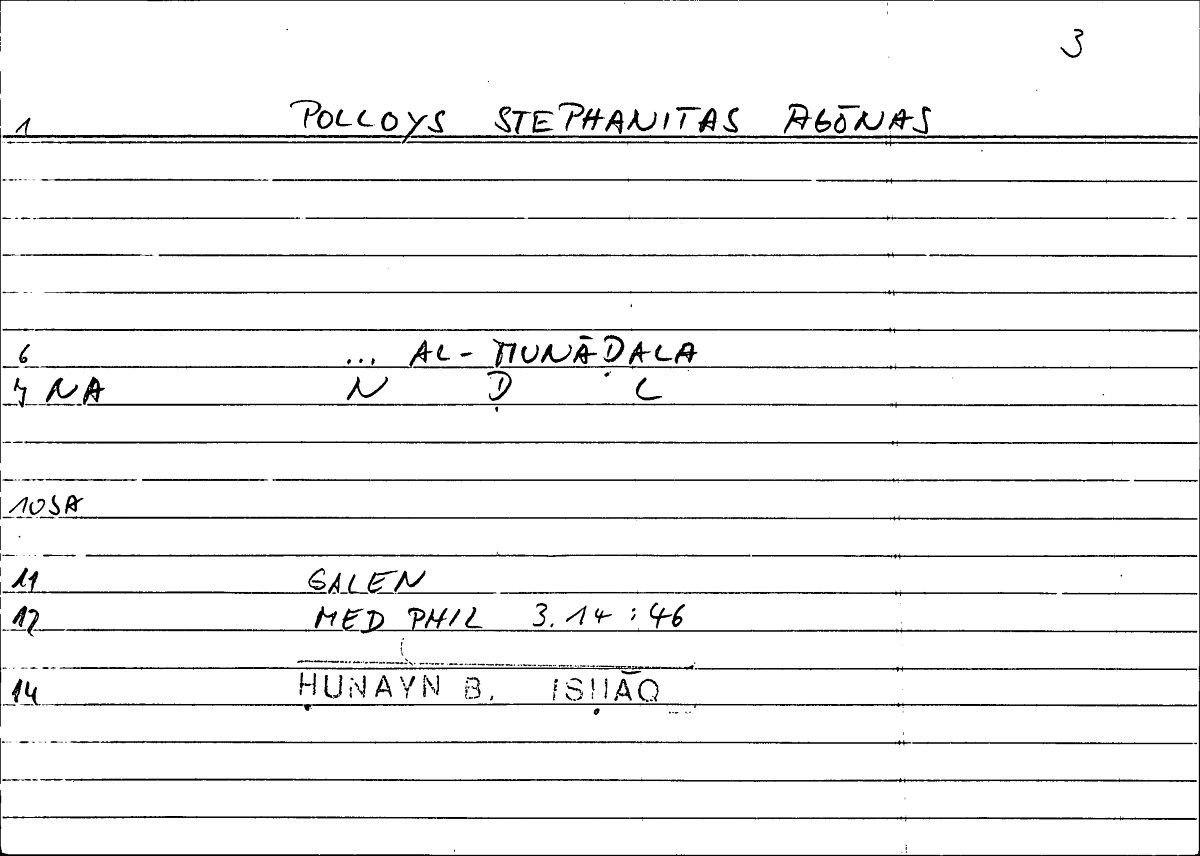 3
1 POLLOYS STEPHANITAS AGŌNAS
6 ... AL-MUNĀḌALA
7 NA N Ḍ L
10SA
11 GALEN
12 MED PHIL 3.14:46
14 ḤUNAYN B. ISḤĀQ